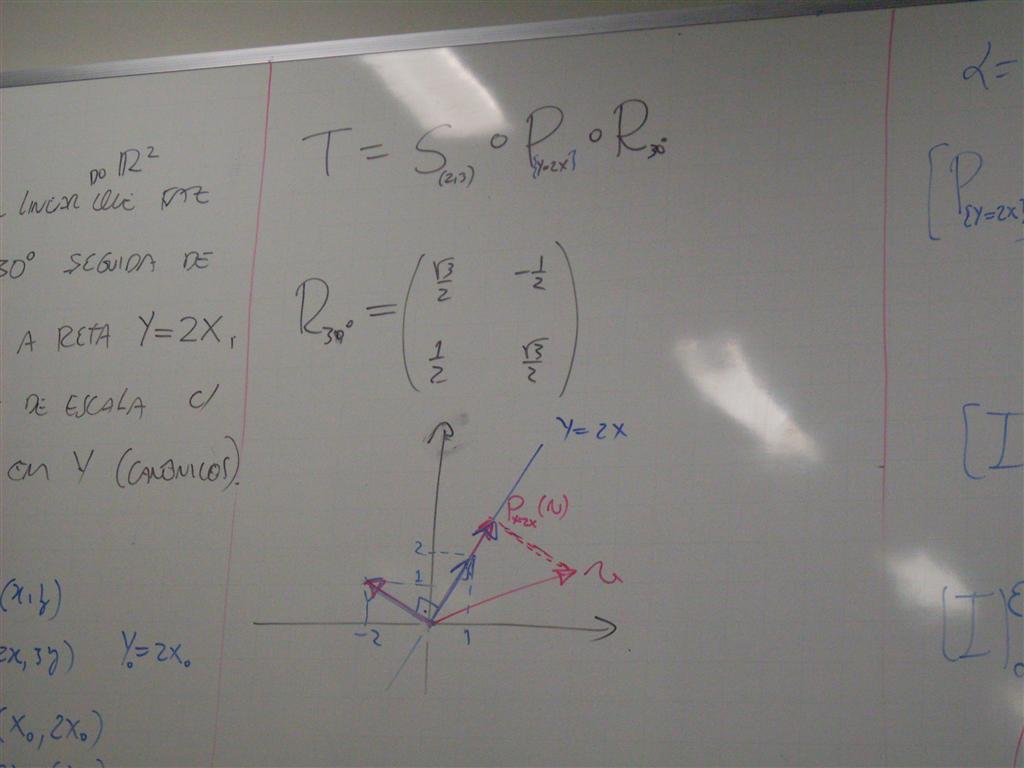 DO ℝ²
LINEAR QUE FAZ
30° SEGUIDA DE
A RETA Y=2X,
DE ESCALA C/
EM Y (CANÔNICOS).
(x,y)
2x,3y) Y₀=2X₀
(X₀,2X₀)
T = S₍₂,₃₎ ∘ P{Y=2X} ∘ R₃₀°
R₃₀° = ( √3/2 -1/2
1/2 √3/2 )
Y=2X
P_{Y=2X}(v)
2
1
v
-2 1
α=
[P{Y=2X}
[I
[I]